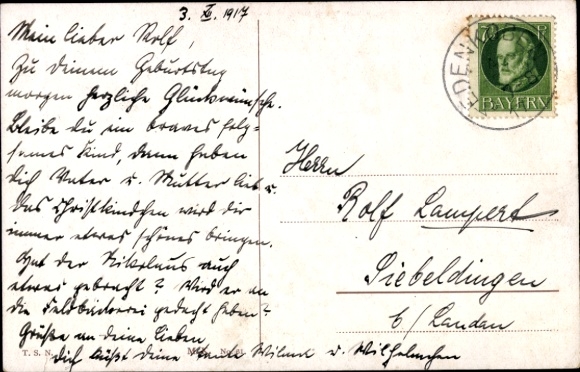 3. XII. 1917
Mein lieber Rolf,
Zu deinem Geburtstag
morgen herzliche Glückwünsche.
Bleibe du ein braves folg=
sames Kind, dann haben
dich Vater u. Mutter lieb u.
das Christkindchen wird dir
immer etwas schönes bringen.
Hat der Nikolaus auch
etwas gebracht? Wird er an
die Feldbäckerei gedacht haben?
Grüße an deine Lieben
Dich küßt deine Tante u. Wilhelmchen
T. S. N.
Herrn
Rolf Lampert
Siebeldingen
b/Landau
BAYERN
EDENK